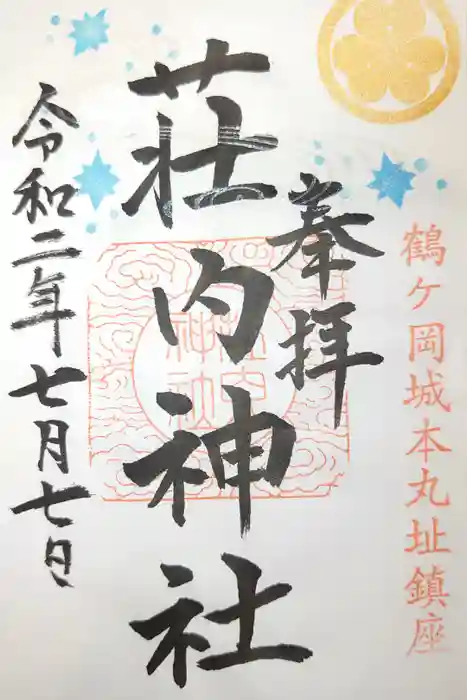 鶴ケ岡城本丸址鎮座
奉拝
荘内神社
令和二年七月七日
荘内
神社